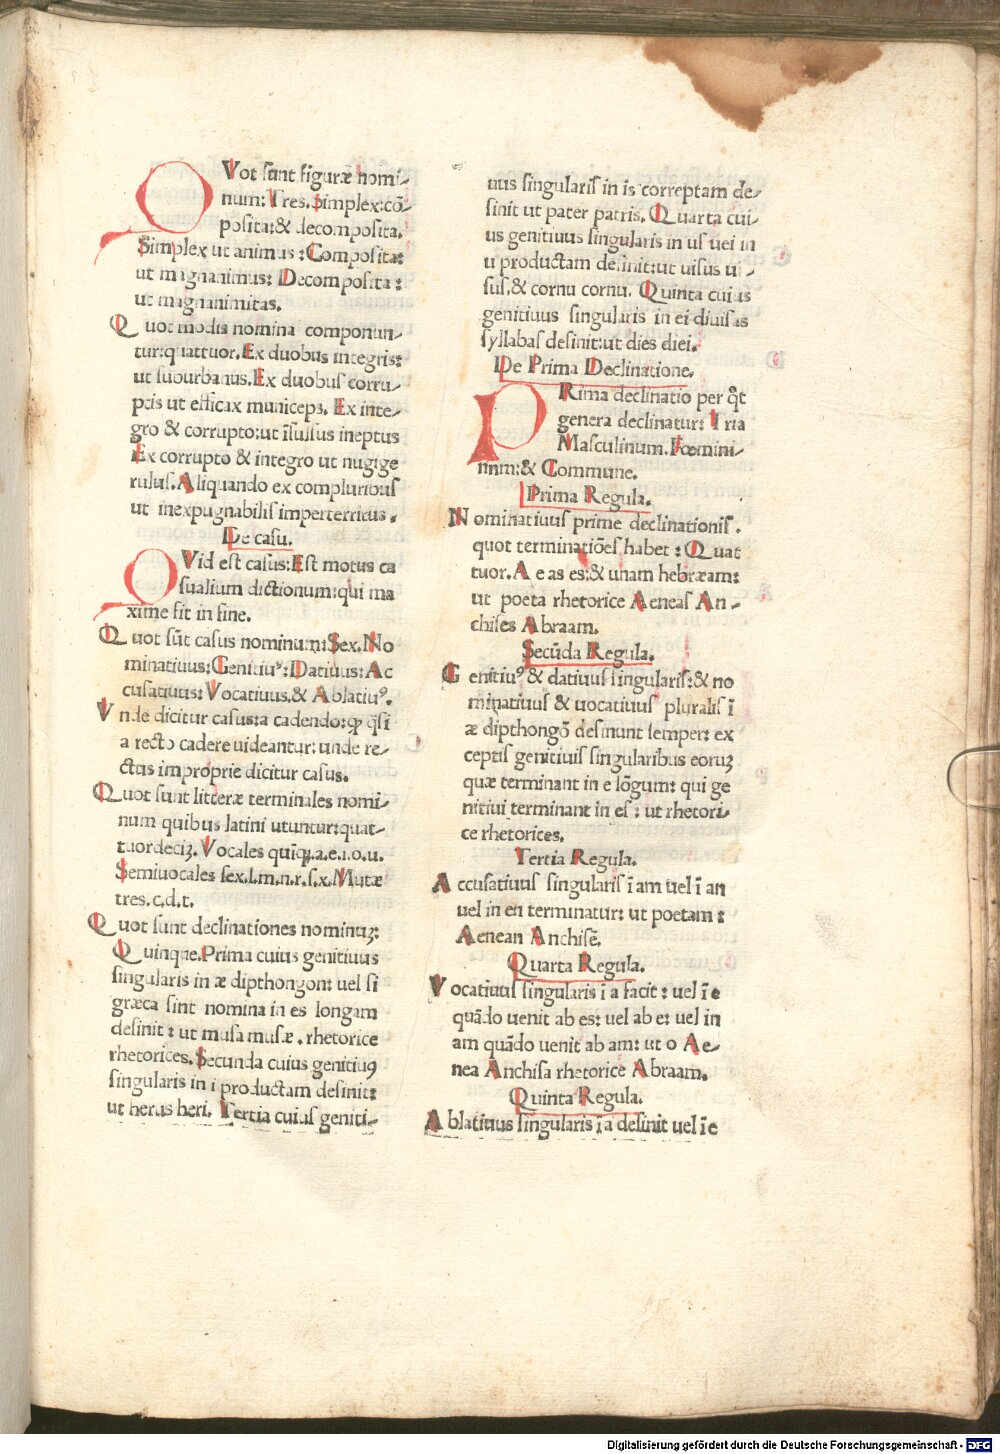 QVot sunt figuræ nomi-
num: Tres. Simplex: cō-
posita: & decomposita.
Simplex ut animus: Composita:
ut magnanimus: Decomposita:
ut magnanimitas.
Quot modis nomina componun-
tur: quattuor. Ex duobus integris:
ut suburbanus. Ex duobus corru-
ptis ut efficax municeps. Ex inte-
gro & corrupto: ut īsulsus ineptus
Ex corrupto & integro ut nugige
rulus. Aliquando ex compluribus
ut inexpugnabilis imperterritus.
De casu.
QVid est casus: Est motus ca
sualium dictionum: qui ma
xime fit in fine.
Quot sūt casus nominum: Sex. No
minatiuus: Genitiuꝰ: Datiuus: Ac
cusatiuus: Vocatiuus. & Ablatiuꝰ.
Vnde dicitur casus: a cadendo: ꝙ q̄si
a recto cadere uideantur: unde re-
ctus improprie dicitur casus.
Quot sunt litteræ terminales nomi-
num quibus latini utuntur: quat-
tuordeciꝫ. Vocales quīqꝫ. a. e. i. o. u.
Semiuocales sex. l. m. n. r. s. x. Mutæ
tres. c. d. t.
Quot sunt declinationes nominuꝫ:
Quinque. Prima cuius genitiuus
singularis in æ dipthongon: uel si
græca sint nomina in es longam
desinit: ut musa musæ. rhetorice
rhetorices. Secunda cuius genitiuꝰ
singularis in i productam desinit:
ut herus heri. Tertia cuius geniti-
uus singularis in is correptam de-
sinit ut pater patris. Quarta cui-
us genitiuus singularis in us uel in
u productam desinit: ut uisus ui-
sus. & cornu cornu. Quinta cuius
genitiuus singularis in ei diuisas
syllabas desinit: ut dies diei.
De Prima Declinatione.
PRima declinatio per q̊t
genera declinatur: Tria
Masculinum. Fœmini-
num: & Commune.
Prima Regula.
Nominatiuus prime declinationis.
quot terminatiōes habet: Quat
tuor. A e as es: & unam hebræam:
ut poeta rhetorice Aeneas An-
chises Abraam.
Secūda Regula.
Genitiuꝰ & datiuus singularis: & no
minatiuus & uocatiuus pluralis ī
æ dipthongō desinunt semper: ex
ceptis genitiuis singularibus eoruꝫ
quæ terminant in e lōgum: qui ge
nitiui terminant in es: ut rhetori-
ce rhetorices.
Tertia Regula.
Accusatiuus singularis ī am uel ī an
uel in en terminatur: ut poetam:
Aenean Anchisē.
Quarta Regula.
Vocatiuus singularis ī a facit: uel ī e
quādo uenit ab es: uel ab e: uel in
am quādo uenit ab am: ut o Ae-
nea Anchisa rhetorice Abraam.
Quinta Regula.
Ablatiuus singularis ī a desinit uel ī e
Digitalisierung gefördert durch die Deutsche Forschungsgemeinschaft - DFG